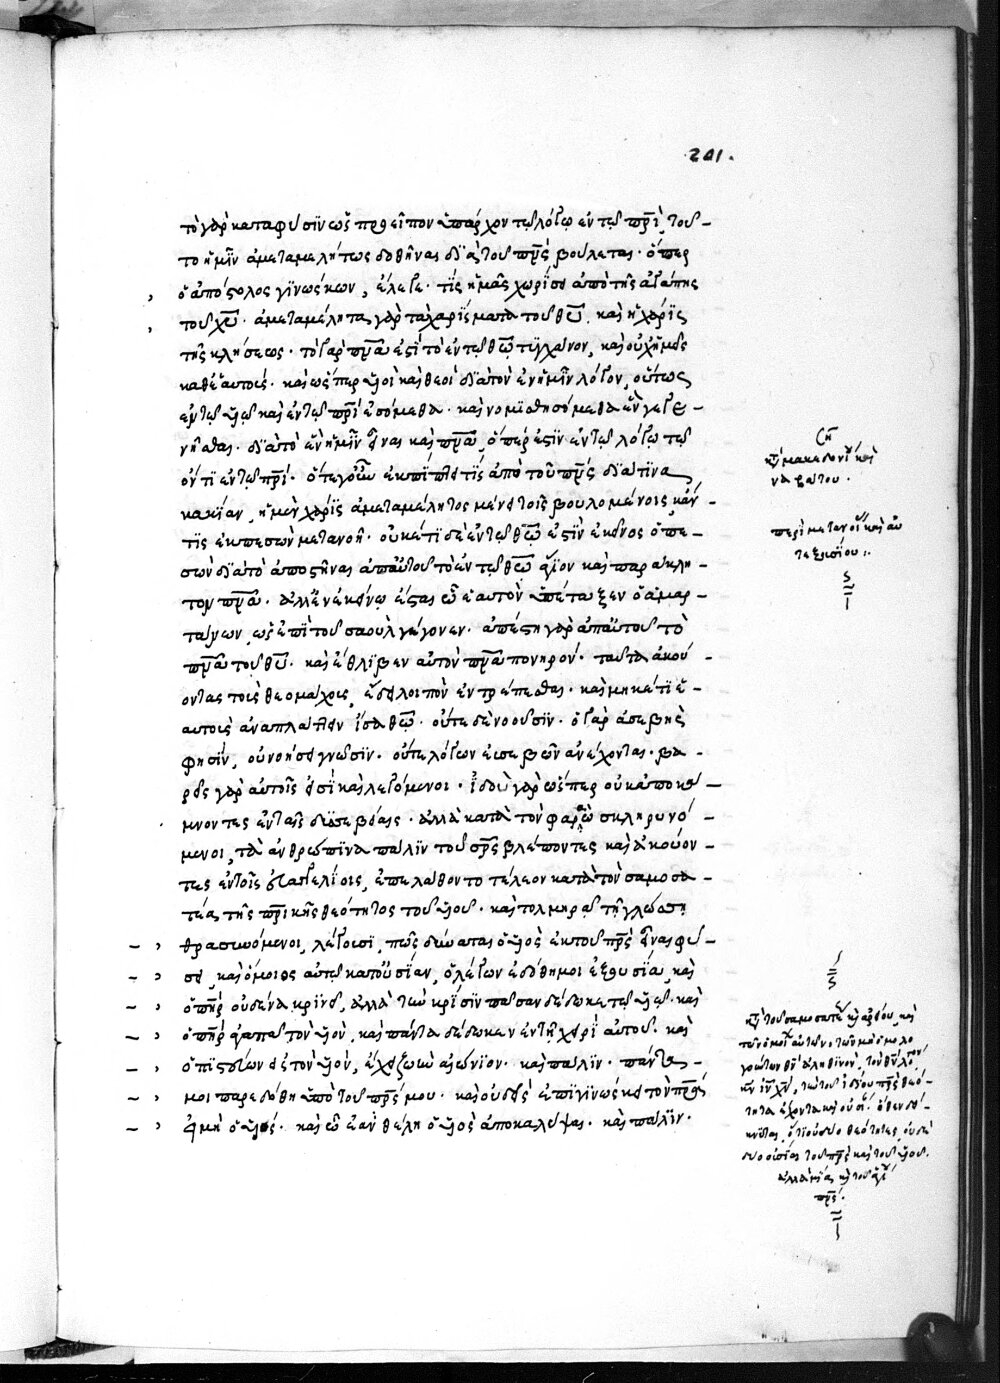 201.
τὸ γὰρ κατὰ φύσιν ὡς προεῖπον ὑπάρχον τῷ λόγῳ ἐν τῷ πρὶ, τοῦ-
το ἡμῖν ἀμεταμελήτως δοθῆναι διὰ τοῦ πνς βούλεται· ὅπερ
ὁ ἀπόστολος γινώσκων, ἔλεγε· τίς ἡμᾶς χωρίσει ἀπὸ τῆς ἀγάπης
τοῦ χυ· ἀμεταμέλητα γὰρ τὰ χαρίσματα τοῦ θυ, καὶ ἡ χάρις
τῆς κλήσεως· τὸ γὰρ πνα ἐστὶ τὸ ἐν τῷ θω τυγχάνον, καὶ οὐχ ἡμεῖς
καθ' ἑαυτούς· καὶ ὥσπερ υἱοὶ καὶ θεοὶ διὰ τὸν ἐν ἡμῖν λόγον, οὕτως
ἐν τῷ υἱῷ καὶ ἐν τῷ πρὶ ἐσόμεθα· καὶ νομισθησόμεθα ἓν γεγε-
νῆσθαι· διὰ τὸ ἐν ἡμῖν εἶναι καὶ πνα, ὅπερ ἐστὶν ἐν τῷ λόγῳ τῷ
ὄντι ἐν τῷ πρί· ὅτε γοῦν ἐκπίπτει τὶς ἀπὸ τοῦ πνς διά τινα
κακίαν, ἡ μὲν χάρις ἀμεταμέλητος μένει τοῖς βουλομένοις, κἄν
τις ἐκπεσὼν μετανοῇ· οὐκέτι δὲ ἐν τῷ θω ἐστὶν ἐκεῖνος ὁ πε-
σὼν διὰ τὸ ἀποστῆναι ἀπ' αὐτοῦ τὸ ἐν τῷ θω ἅγιον καὶ παράκλη-
τον πνα· ἀλλ' ἐν ἐκείνῳ ἔσται ᾧ ἑαυτὸν ὑπέταξεν ὁ ἁμαρ-
τάνων, ὡς ἐπὶ τοῦ σαοὺλ γέγονεν· ἀπέστη γὰρ ἀπ' αὐτοῦ τὸ
πνα τοῦ θυ· καὶ ἔθλιβεν αὐτὸν πνα πονηρόν· ταῦτα ἀκού-
οντας τοὺς θεομάχους, ἔδει λοιπὸν ἐντρέπεσθαι· καὶ μηκέτι ἑ-
αυτοὺς ἀναπλάττειν ἴσα θω· οὔτε δὲ νοοῦσιν· ὁ γὰρ ἀσεβὴς
φησίν, οὐ νοήσει γνῶσιν· οὔτε λόγων εὐσεβῶν ἀνέχονται· βα-
ρεῖς γὰρ αὐτοῖς εἰσὶ καὶ λεγόμενοι· ἰδοὺ γὰρ ὥσπερ οὐκ ἀποκά-
μνοντες ἐν ταῖς δυσσεβείαις· ἀλλὰ κατὰ τὸν φαραὼ σκληρυνό-
μενοι, τὰ ἀνθρώπινα πάλιν τοῦ σρς βλέποντες καὶ ἀκούον-
τες ἐν τοῖς εὐαγγελίοις, ἐπελάθοντο τέλεον κατὰ τὸν σαμοσα-
τέα τῆς πρικῆς θεότητος τοῦ υἱοῦ· καὶ τολμηρᾷ τῇ γλώσσῃ
θρασυνόμενοι, λέγουσι, πῶς δύναται ὁ υἱὸς ἐκ τοῦ πρς εἶναι φύ-
σει, καὶ ὅμοιος αὐτῷ κατ' οὐσίαν, ὁ λέγων ἐδόθη μοι ἐξουσία, καὶ
ὁ πηρ οὐδένα κρίνει, ἀλλὰ τὴν κρίσιν πᾶσαν δέδωκε τῷ υἱῷ· καὶ
ὁ πηρ ἀγαπᾷ τὸν υἱόν, καὶ πάντα δέδωκεν ἐν τῇ χειρὶ αὐτοῦ· καὶ
ὁ πιστεύων εἰς τὸν υἱόν, ἔχει ζωὴν αἰώνιον· καὶ πάλιν· πάντα
μοι παρεδόθη ὑπὸ τοῦ πρς μου· καὶ οὐδεὶς ἐπιγινώσκει τὸν πρα εἰ
μὴ ὁ υἱός· καὶ ᾧ ἐὰν θέλῃ ὁ υἱὸς ἀποκαλύψαι· καὶ πάλιν·
ση
κτ μακεδονίου καὶ
ναβάτου·
περὶ μετανοίας καὶ αὐ
τεξουσίου:·
κτ τοῦ σαμοσατέως καὶ ἀρείου, καὶ
τῶν ὁμοίων αὐτῶν, τῶν μὴ ὁμολο
γούντων θν ἀληθινὸν, τὸν θν λόγον
ιν χν, τὴν τοῦ ἰδίου πρς θεό-
τητα ἔχοντα καὶ οὐσίαν· ὅθεν δεί-
κνυται, ὅτι οὐ δύο θεότητες, οὐδὲ
δύο οὐσίαι τοῦ πρς καὶ τοῦ υἱοῦ·
ἀλλὰ μία καὶ τοῦ υἱοῦ
πρς·